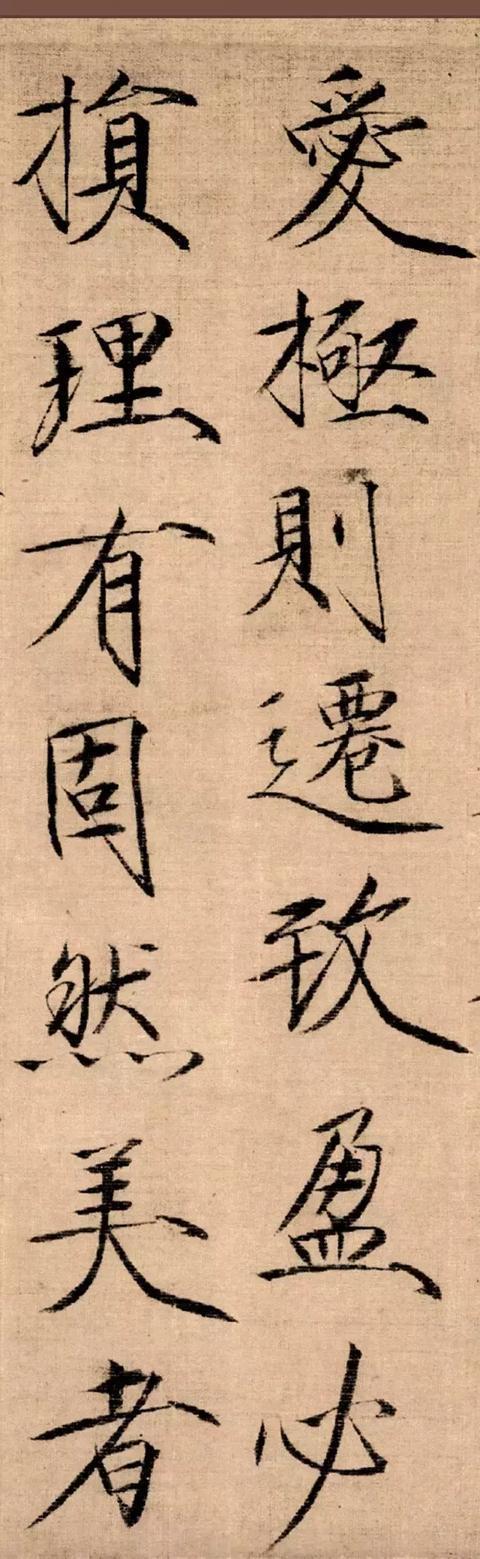 愛極則遷致盈必
損理有固然美者